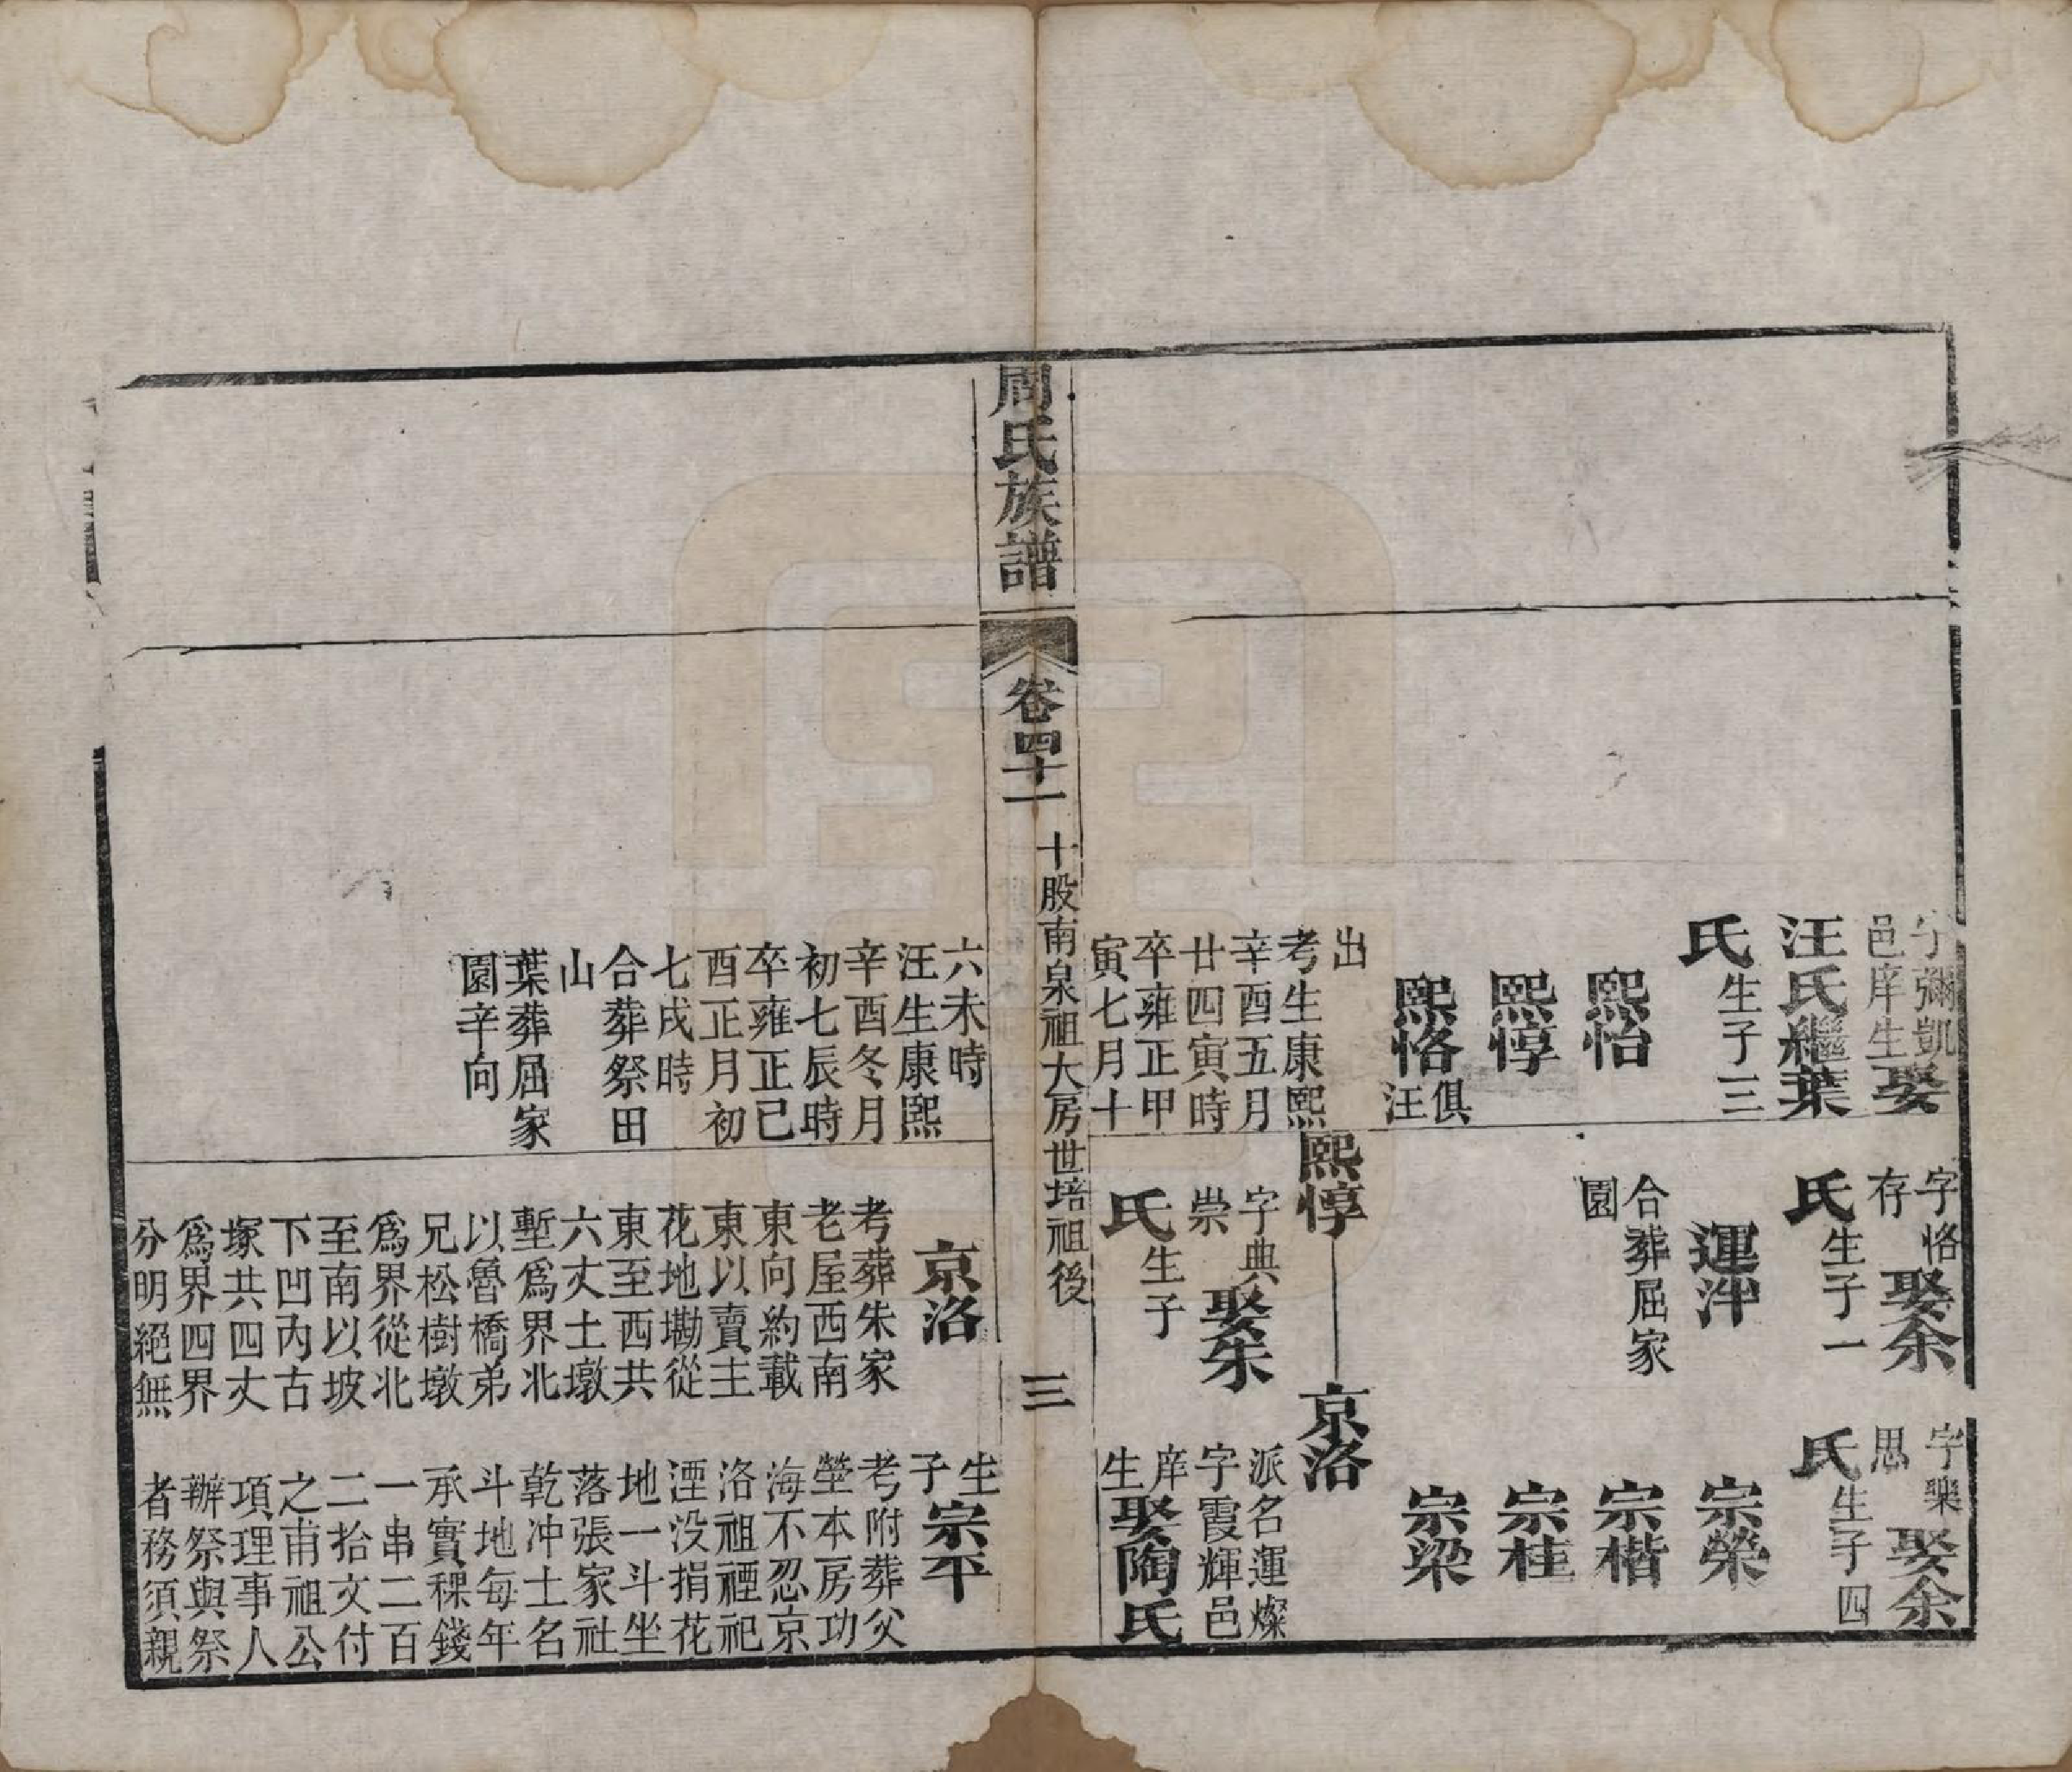 字彌凱
邑庠生娶
汪氏繼葉
氏生子三
熙怡
熙惇
熙恪俱
汪
出
考生康熙
辛酉五月
廿四寅時
卒雍正甲
寅七月十
字恪
存娶余
氏生子一
運泮
合葬屈家
園
熙惇
字典
崇娶朱
氏生子
字樂
思娶余
氏生子四
宗榮
宗楷
宗桂
宗梁
京洛
派名運燦
字霞輝邑
庠
生娶陶氏
周氏族譜
卷四十一
十股南泉祖大房世培祖後
三
六未時
汪生康熙
辛酉冬月
初七辰時
卒雍正己
酉正月初
七戌時
合葬祭田
山
葉葬屈家
園辛向
京洛
考葬朱家
老屋西南
東向約載
東以賣主
花地墈從
東至西共
六丈土墩
塹爲界北
以魯橋弟
兄松樹墩
爲界從北
至南以坡
下凹內古
塚共四丈
爲界四界
分明絕無
生
子宗平
考附葬父
塋本房功
海不忍京
洛祖禋祀
湮没捐花
地一斗坐
落張家社
乾冲土名
斗地每年
承實稞錢
一串二百
二拾文付
之甫祖公
項理事人
辦祭與祭
者務須親